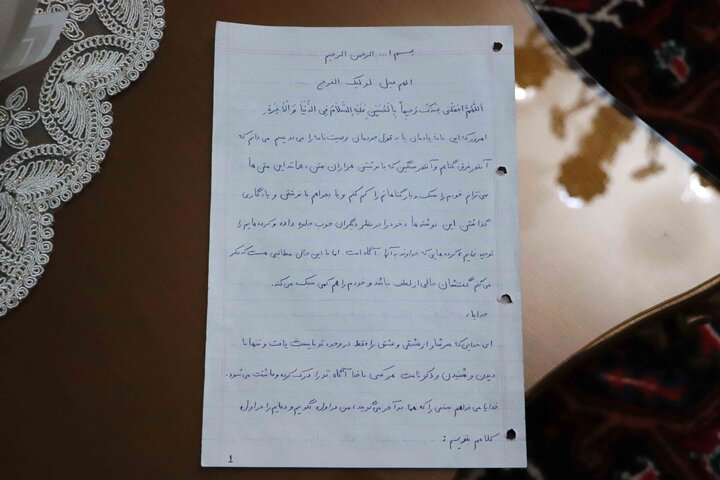 بسم ا... الرحمن الرحیم
الهم عجل لولیک الفرج
اَللّهُمَّ اجْعَلْنی عِنْدَکَ وَجیهاً بِالْحُسَیْنِ عَلَیْهِ السَّلامُ فِی الدُّنْیا وَ الْاخِرَةِ
امروز که این نامه یادمان یا به قول خودمان وصیت نامه را می نویسم می دانم که
آنقدر غرق گناهم و آنقدر سنگین که با نوشتن هزاران متن، همانند این متن ها
نمی توانم خودم را سبک و بار گناهانم را کم کنم و یا بخواهم با نوشتن و یادگاری
گذاشتن این نوشته ها، خود را در نظر دیگران خوب جلوه داده و کرده هایم را
توجیه نمایم، کرده هایی که خداوند به آنها آگاه است. اما با این حال مطالبی هست که فکر
می کنم گفتنشان خالی از لطف نباشد و خودم را هم کمی سبک می کند.
خدایا،
ای خدایی که سرشار از عشقی و عشق را فقط در وجود تو بایست یافت و تنها با
دیدن و شنیدن و ذکر نامت هر کسی ناخدا آگاه تو را درک کرده و عاشقت می شود.
خدایا می خواهم سخنی را که همه در آخر می گویند، من در اول بگویم و دعایم را در اول
کلامم بگویم :
1